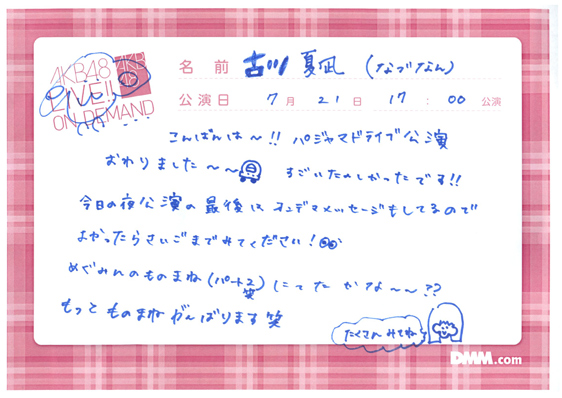 AKB48
LIVE!!
ON DEMAND
AKB
48
名 前 古川 夏凪 (なづなん)
公演日 7月 21日 17:00 公演
こんばんは〜!! パジャマドライブ公演
おわりました〜〜 すごいたのしかったです!!
今日の夜公演の最後にオンデマメッセージもしてるので
よかったらさいごまでみてください!
めぐみんのものまね(パート2笑)にてたかな〜〜??
もっとものまねがんばります笑
たくさんみてね
DMM.com